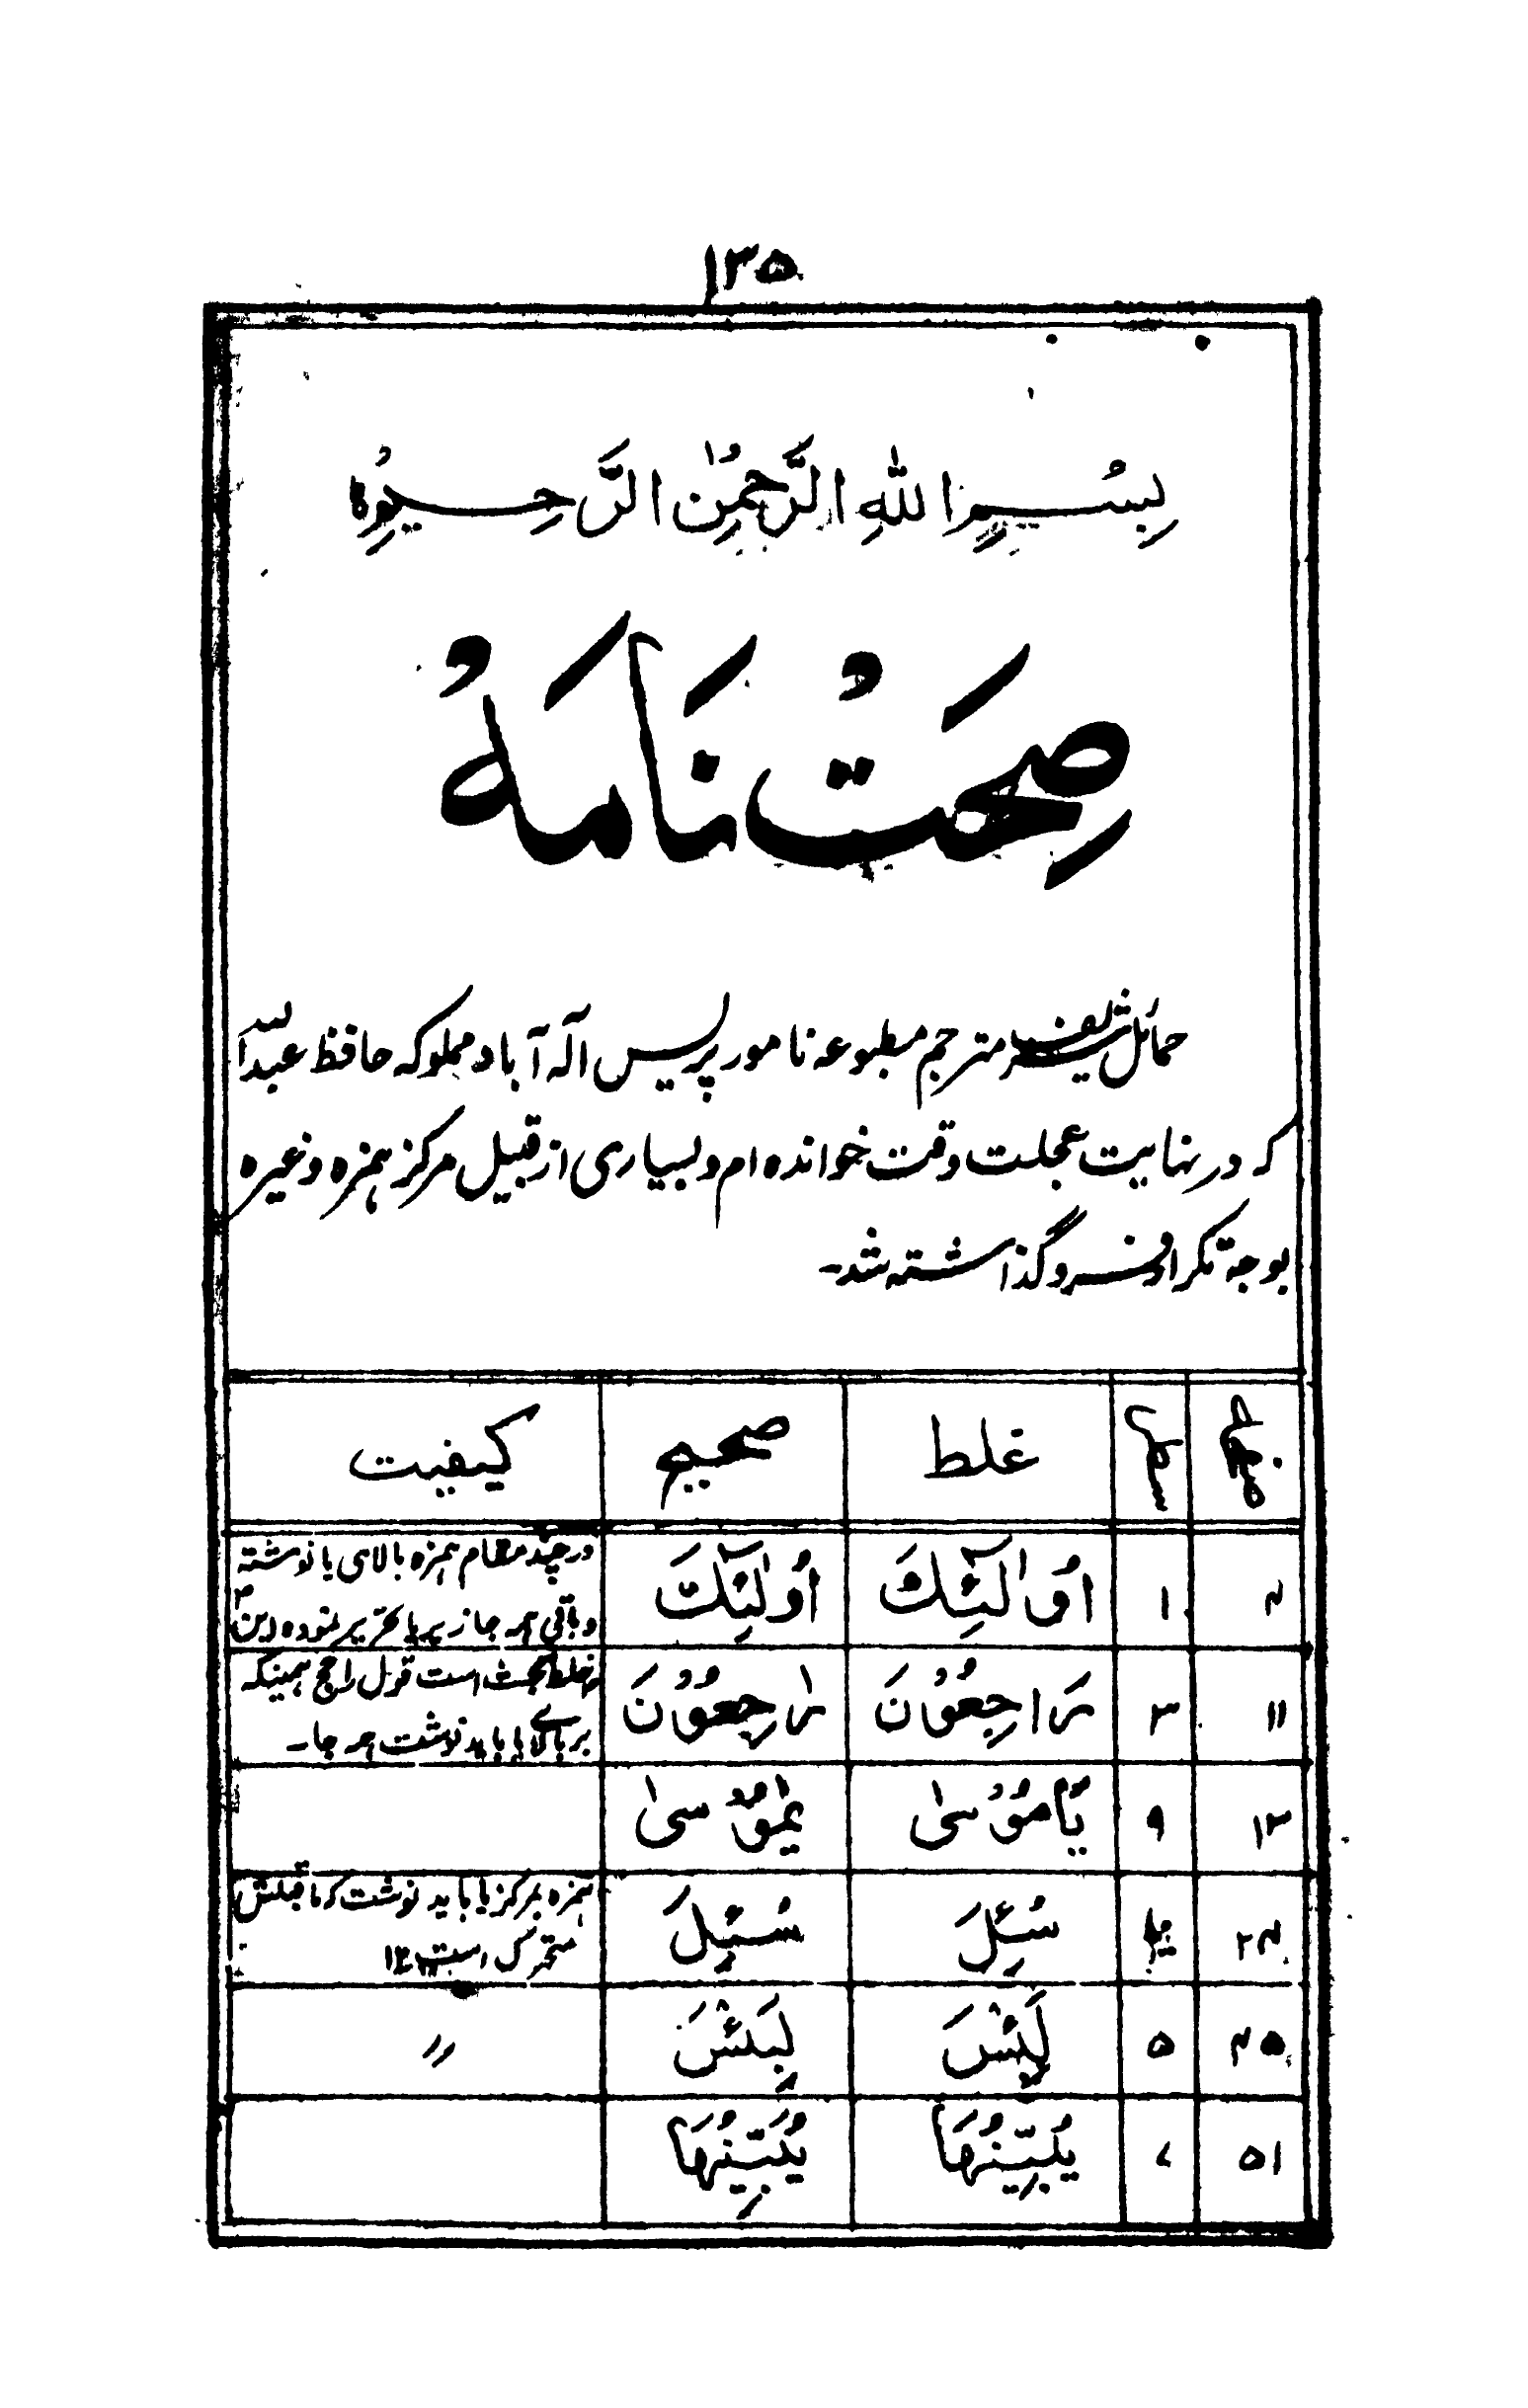 ۱۳۵
بِسْمِ اللهِ الرَّحْمٰنِ الرَّحِيْمِ
صِحَتْ نَامَهْ
حمائل شریف مترجم مطبوعہ نامور پریس الہ آباد مملوکہ حافظ عبداللہ
کہ در نہایت عجلت وقت خواندہ ام و بسیاری از قبیل مرکز ہمزہ و غیرہ
بوجہ تکرار فرو گذاشتہ شد۔
صفحہ | سطر | غلط | صحیح | کیفیت
۴ | ۱ | اُوْالٰٓئِكَ | اُولٰٓئِكَ | در چند مقام ہمزہ بالای یا نوشتہ
و باقی ہر جا زیر یا تحریر نمودہ این
۱۱ | ۳ | رَاجِعُوْنَ | رٰجِعُوْنَ | خلط بحث است قول راجح ہمینکہ
بر بالای یا باید نوشت ہر جا۔
۱۳ | ۹ | يَامُوْسٰى | يٰمُوْسٰى
۲۴ | سُئِلَ | سُئِلَ | ہمزہ بمرکز یا باید نوشت کہ ما قبلش
متحرک است ۱۲
۴۵ | ۵ | لَبِئْسَ | لَبِئْسَ | ״
۵۱ | ۷ | يُبَيِّنُهَا | يُبَيِّنُهَا